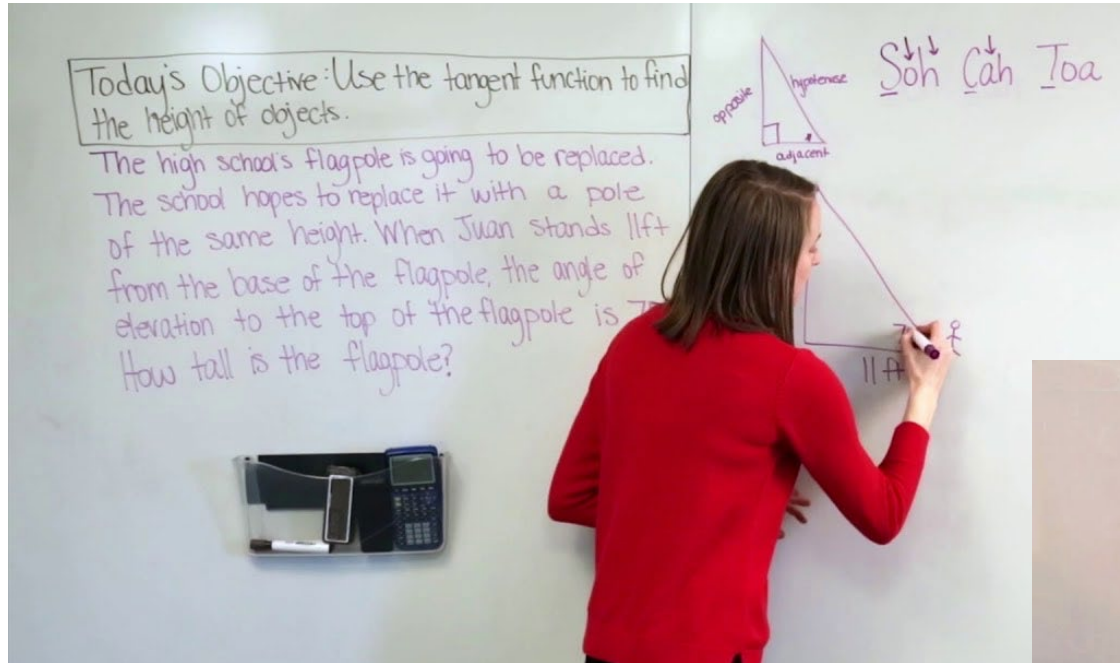 Today's Objective: Use the tangent function to find
the height of objects.
The high school's flagpole is going to be replaced.
The school hopes to replace it with a pole
of the same height. When Juan stands 11ft
from the base of the flagpole, the angle of
elevation to the top of the flagpole is
How tall is the flagpole?
opposite
hypotenuse
adjacent
Soh Cah Toa
11 ft